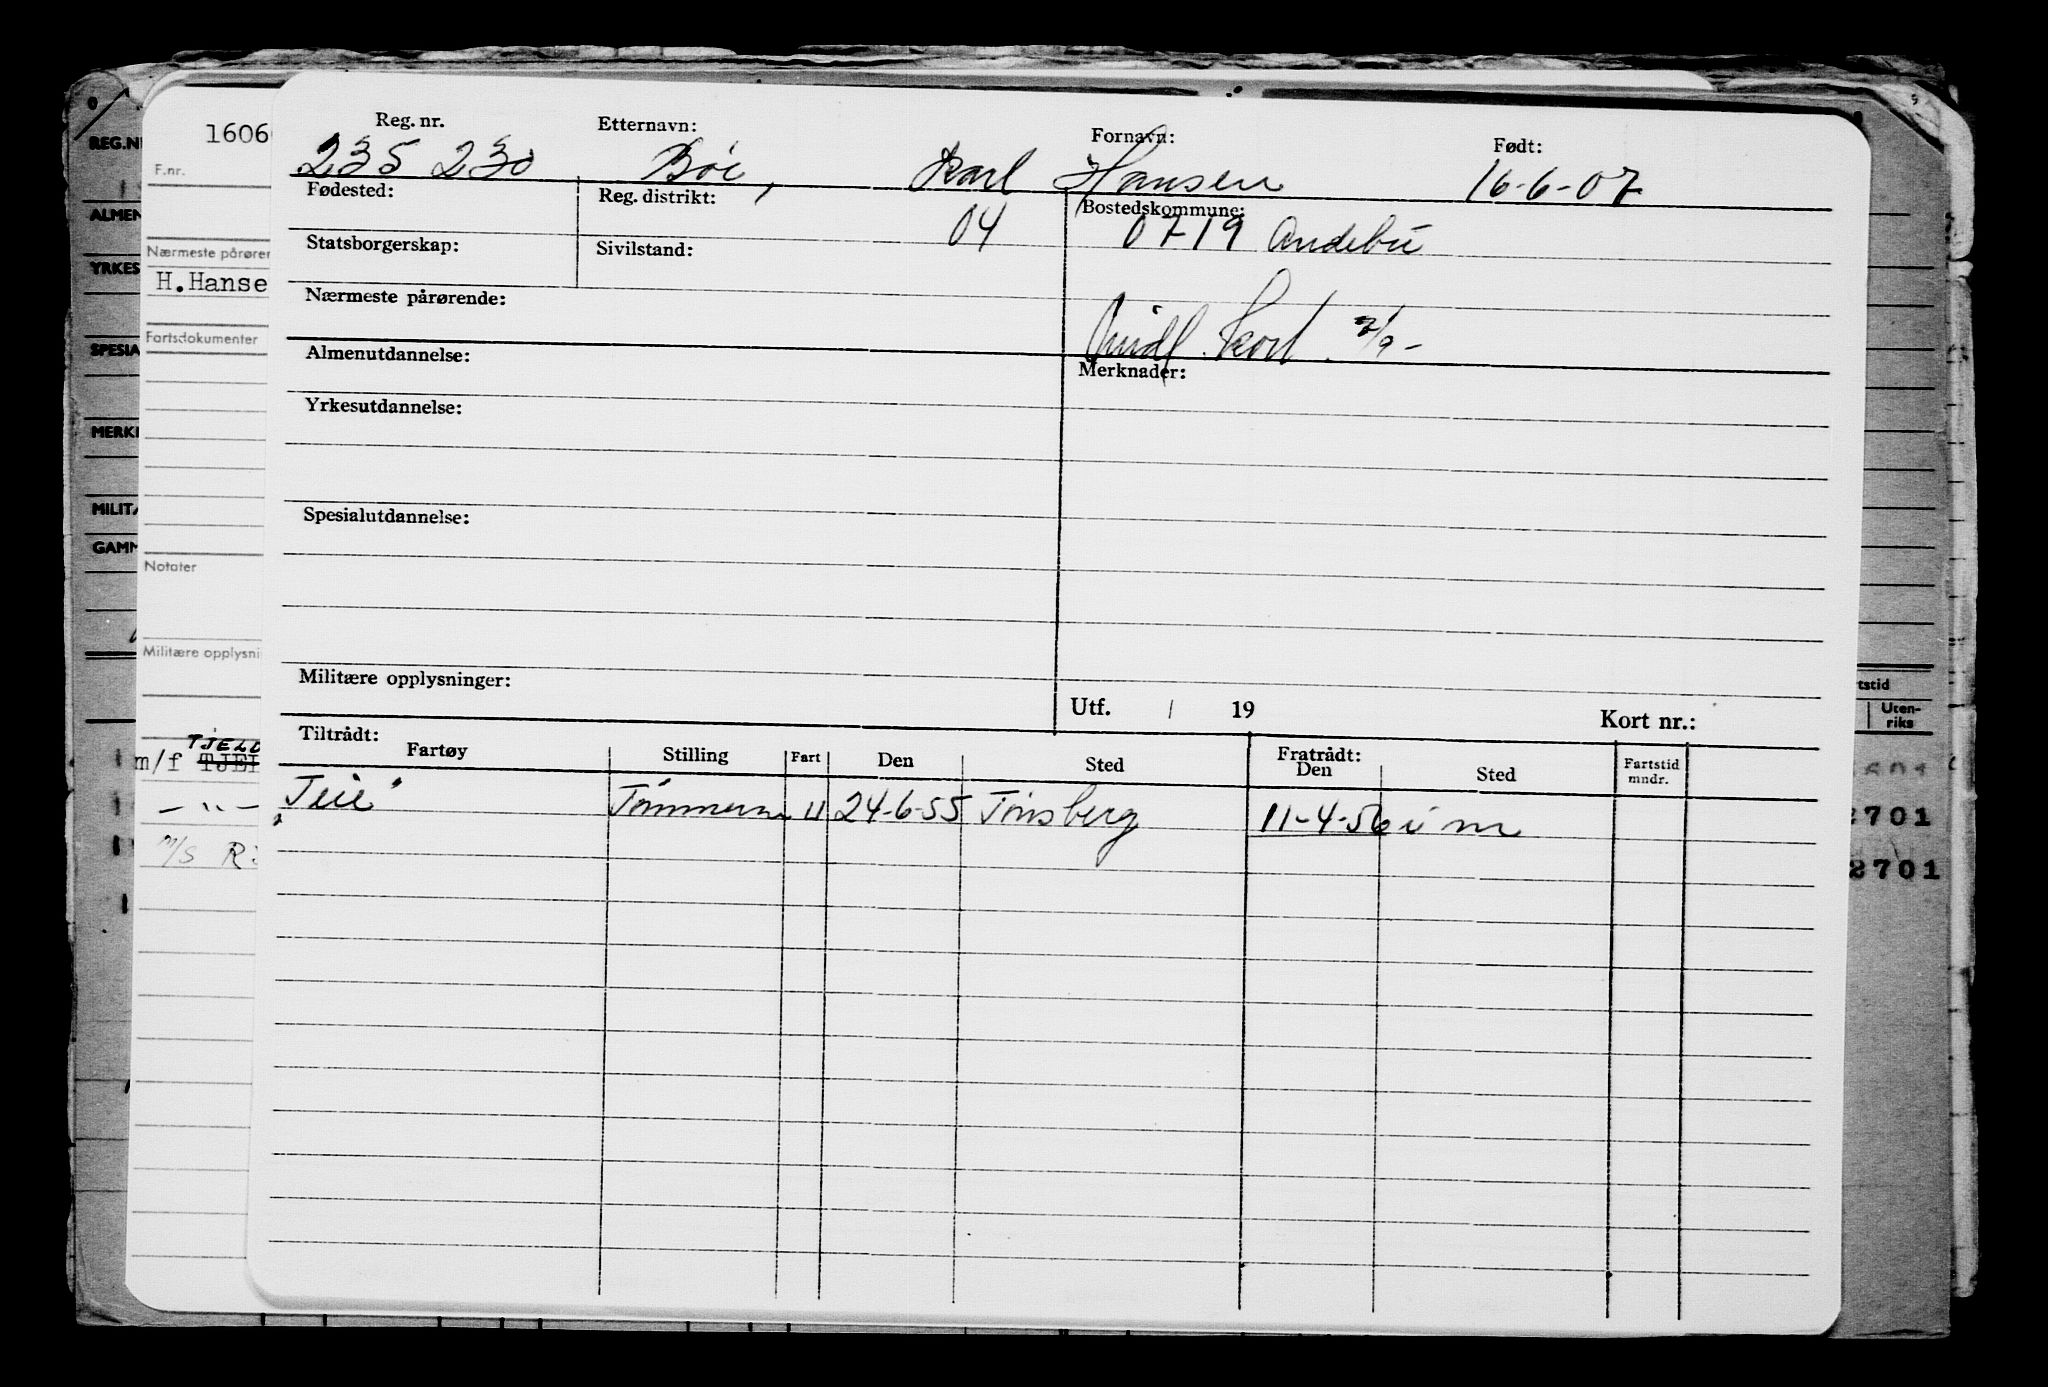 REG.N
ALMEN
YRKES
SPESIA
MERK
MILIT
GAMM
1606
F.nr.
Nærmeste pårøren
H.Hanse
Fartsdokumenter
Notater
Militære opplysni
TJELD
m/f TJEL
— " —
m/s R
Reg. nr. Etternavn: Fornavn: Født:
235 230 Bøe, Karl Hansen 16-6-07
Fødested: Reg. distrikt: Bostedskommune:
04 0719 Andebu
Statsborgerskap: Sivilstand:
Nærmeste pårørende:
Midl. kort
Almenutdannelse: Merknader:
Yrkesutdannelse:
Spesialutdannelse:
Militære opplysninger:
Utf. / 19 Kort nr.:
Tiltrådt: Fratrådt:
Fartøy Stilling Fart Den Sted Den Sted Fartstid mndr.
"Teie" Tømmerm. U 24-6-55 Tønsberg 11-4-56
rtstid
Uten-
riks
2701
2701